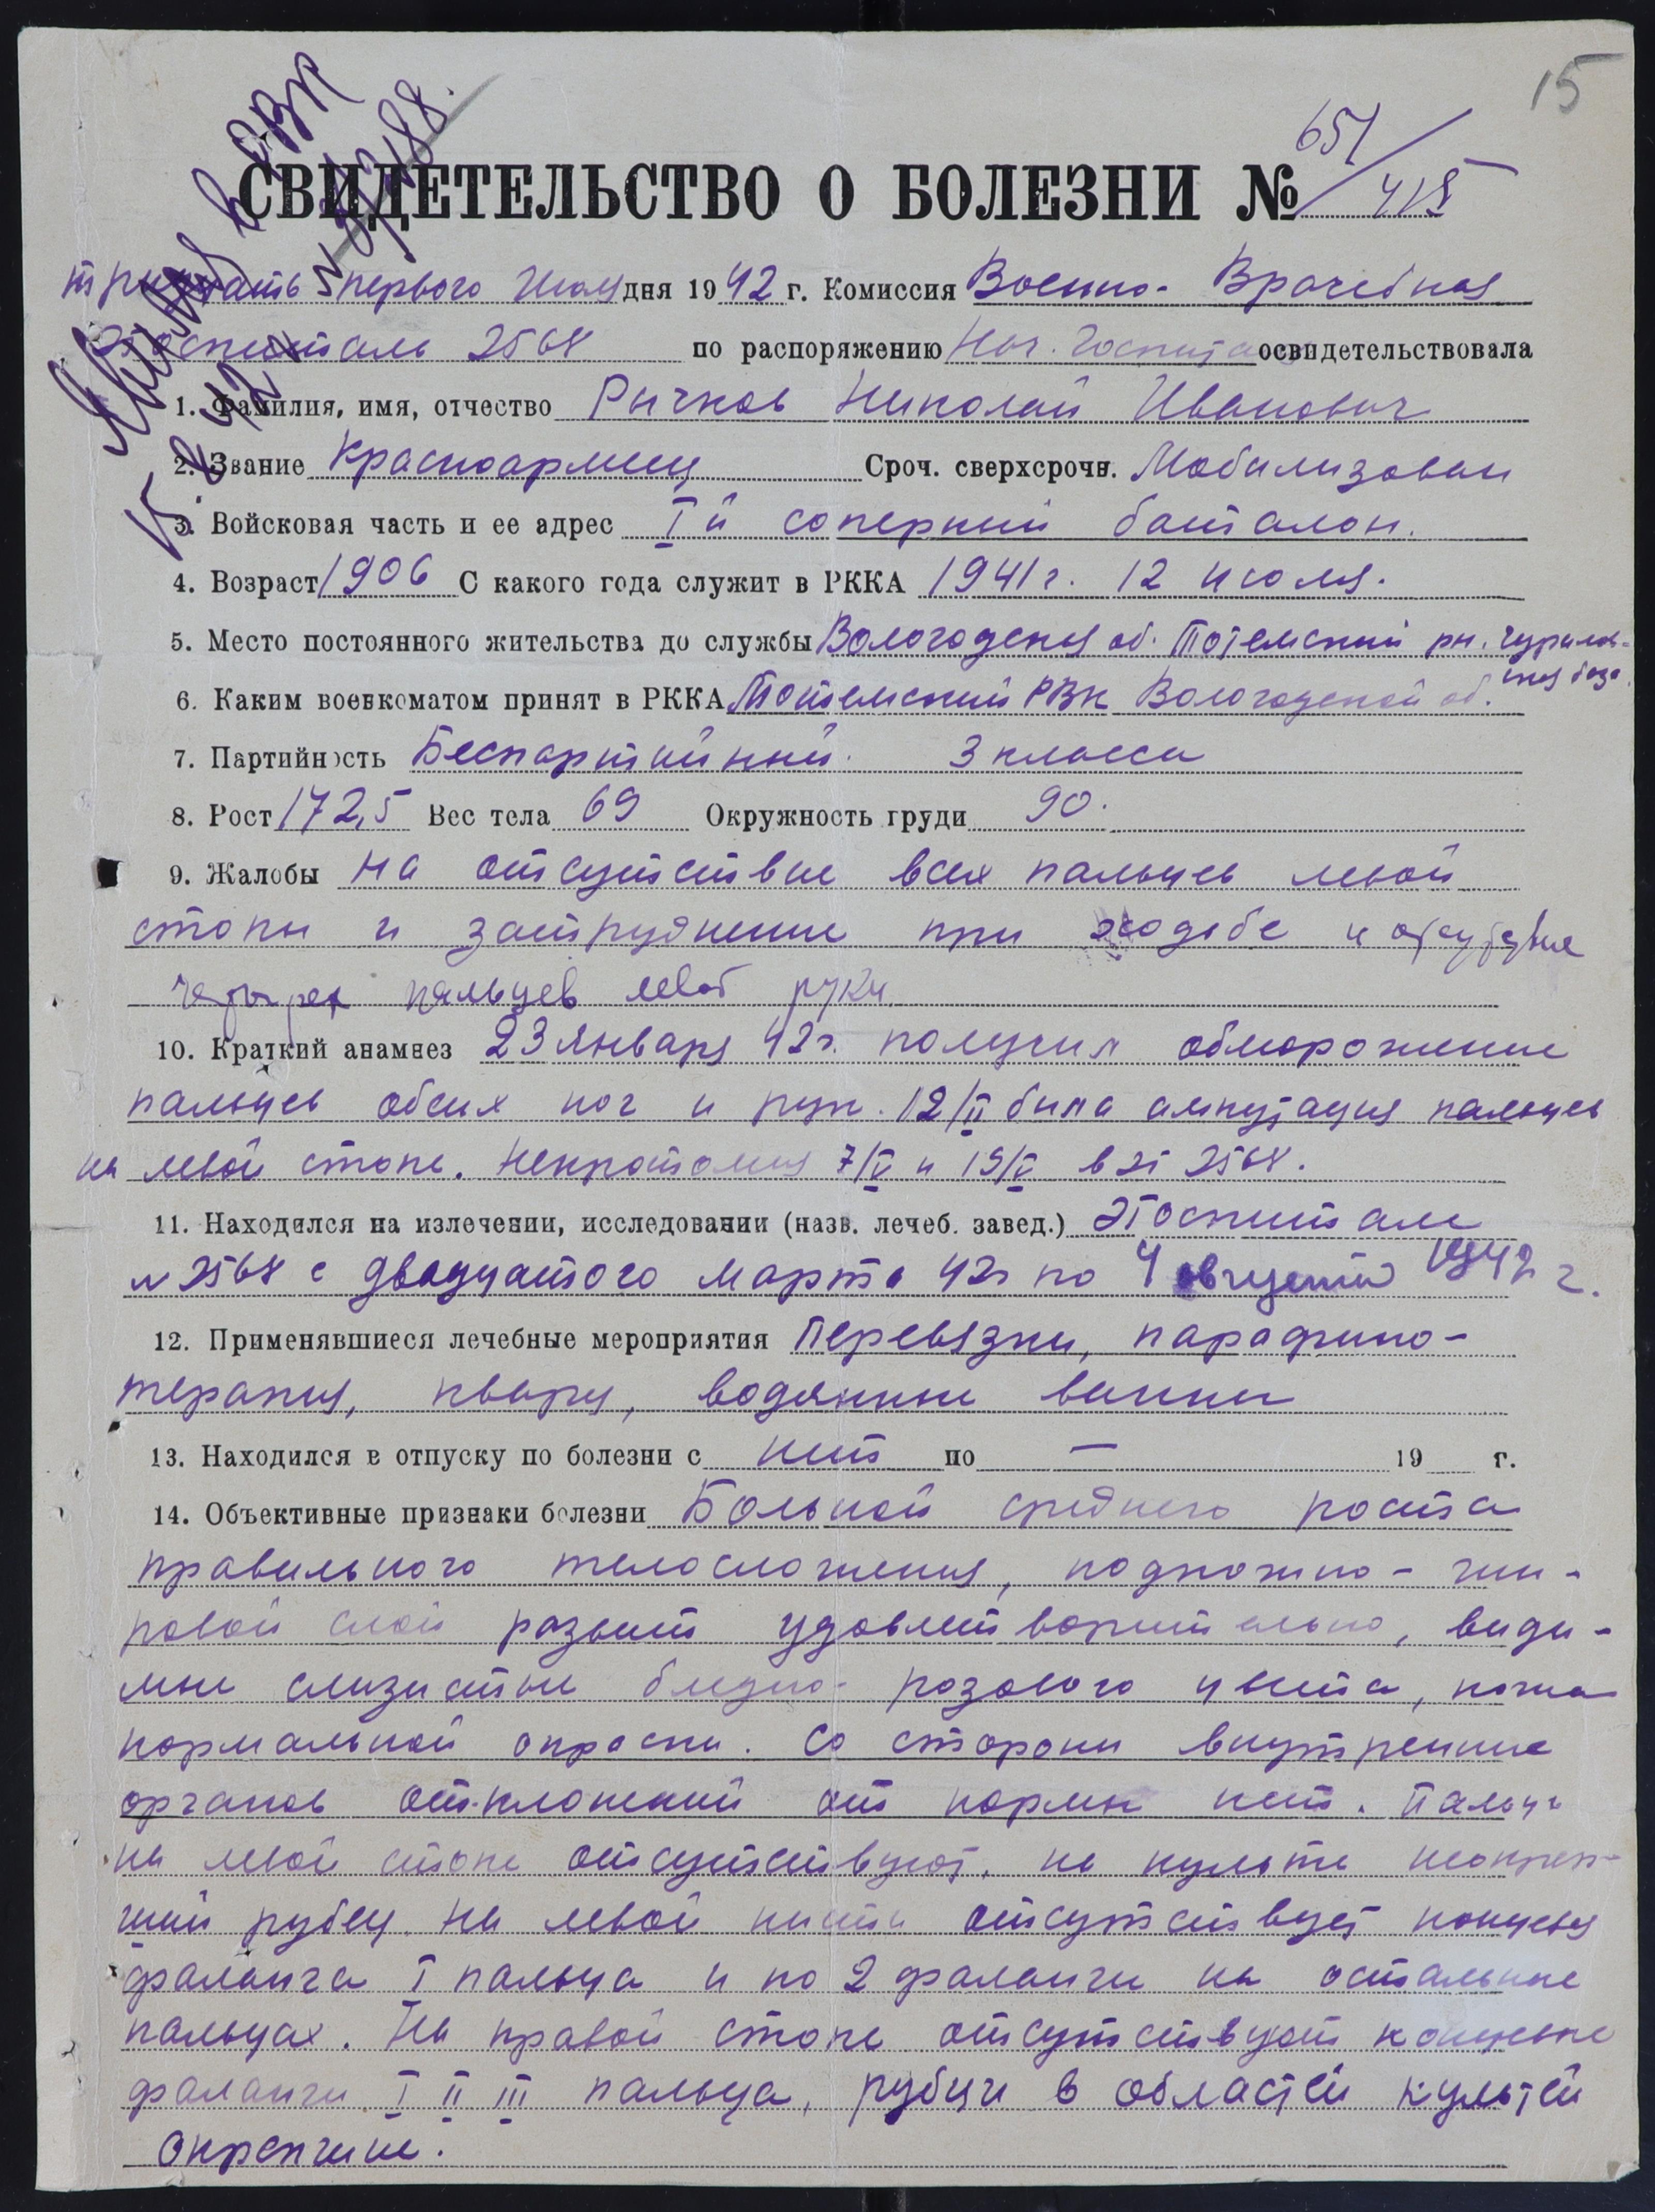 15
651/415
СВИДЕТЕЛЬСТВО О БОЛЕЗНИ №
тридцать первого Июля дня 1942 г. Комиссия Военно-Врачебная
Эгоспиталь 2568 по распоряжению Нач. Госпиталя освидетельствовала
1. Фамилия, имя, отчество Рычков Николай Иванович
2. Звание Красноармеец Сроч. сверхсрочн. Мобилизован
3. Войсковая часть и ее адрес Iй саперный баталон.
4. Возраст 1906 С какого года служит в РККА 1941 г. 12 июля.
5. Место постоянного жительства до службы Вологодская об. Тотемский рн.
6. Каким военкоматом принят в РККА Тотемский РВК Вологодской об.
7. Партийность Беспартийный. 3 класса
8. Рост 172,5 Вес тела 69 Окружность груди 90.
9. Жалобы на отсутствие всех пальцев левой
стопы и затруднение при ходьбе и отсутствие
четырех пальцев левой руки
10. Краткий анамнез 23 января 42 г. получил обморожение
пальцев обеих ног и рук. 12/II была ампутация пальцев
на левой стопе. Некротомия 7/V и 19/V в ЭГ 2568.
11. Находился на излечении, исследовании (назв. лечеб. завед.) ЭГоспитале
№ 2568 с двадцатого марта 42 г по 4 августа 1942 г.
12. Применявшиеся лечебные мероприятия Перевязки, парафино-
терапия, кварц, водянные ванны
13. Находился в отпуску по болезни с нет по — 19 г.
14. Объективные признаки болезни Больной среднего роста
правильного телосложения, подкожно-жи-
ровой слой развит удовлетворительно, види-
мые слизистые бледно-розового цвета, кожа
нормальной окраски. Со стороны внутренние
органов отклонений от нормы нет. Пальцы
на левой стопе отсутствуют, на культе неокреп-
ший рубец. На левой кисти отсутствует концевая
фаланга I пальца и по 2 фаланги на остальные
пальцах. На правой стопе отсутствуют концевые
фаланги I II III пальца, рубцы в областей культей
окрепшие.